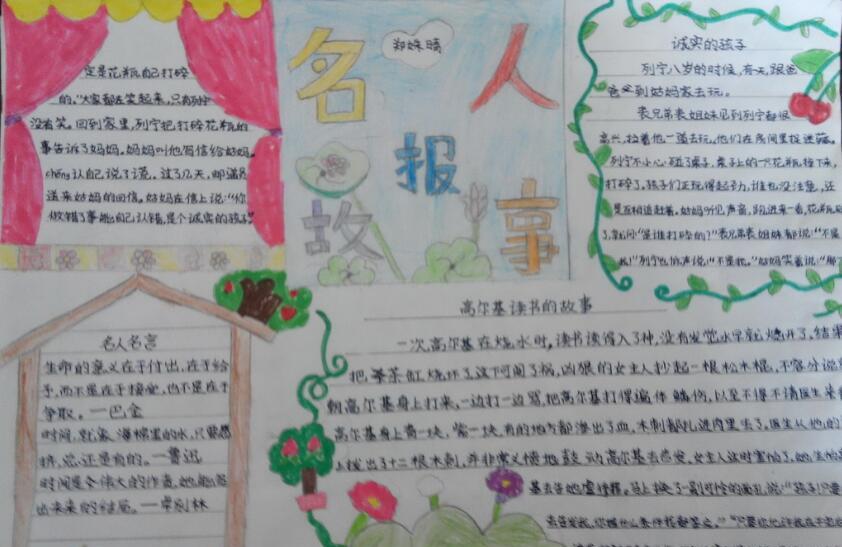 名人故事报
郑姝晴
诚实的孩子
列宁八岁的时候,有一天,跟爸
爸去到姑妈家去玩。
表兄弟表姐妹见到列宁都很
高兴,拉着他一道去玩。他们在房间里捉迷藏。
列宁不小心碰了桌子,桌子上的一只花瓶掉下来,
打碎了。孩子们正玩得起劲,谁也没注意,还
是互相追赶着。姑妈听见声音,跑进来一看,花瓶
了,就问:“是谁打碎的?”表兄弟表姐妹都说:“不是
我!”列宁也低声说:“不是我。”姑妈笑着说:“那
定是花瓶自己打碎
的。”大家都在笑起来,只有列宁
没有笑。回到家里,列宁把打碎花瓶的
事告诉了妈妈。妈妈叫他写信给姑妈。
chéng认自己说了谎。过了几天,邮
送来姑妈的回信。姑妈在信上说:“你
做错了事能自己认错,是个诚实的孩子。”
名人名言
生命的意义在于付出,在于给
予,而不是在于接受,也不是在于
争取。——巴金
时间,就象海棉里的水,只要愿
挤,总还是有的。——鲁迅
时间是个伟大的作者,她能
出未来的结局。——卓别林
高尔基读书的故事
一次,高尔基在烧水时,读书读得入了神,没有发觉水早就烧开了,结果
把茶缸烧坏了。这下可闯了祸,凶狠的女主人抄起一根松木棍,不容分说
朝高尔基身上打来,一边打一边骂,把高尔基打得遍体鳞伤,以至不得不请医生来
高尔基身上青一块,紫一块,有的地方都渗出了血,木刺都扎进肉里去了。医生从他的
上拔出了十二根木刺,并非常义愤地鼓动高尔基去告发,女主人这时害怕了,她生怕高
基去告她虐待罪。马上换了一副可怜的面孔,说:“孩子,只要
去告发我,你提什么条件我都答应。”“只要你允许我在干完